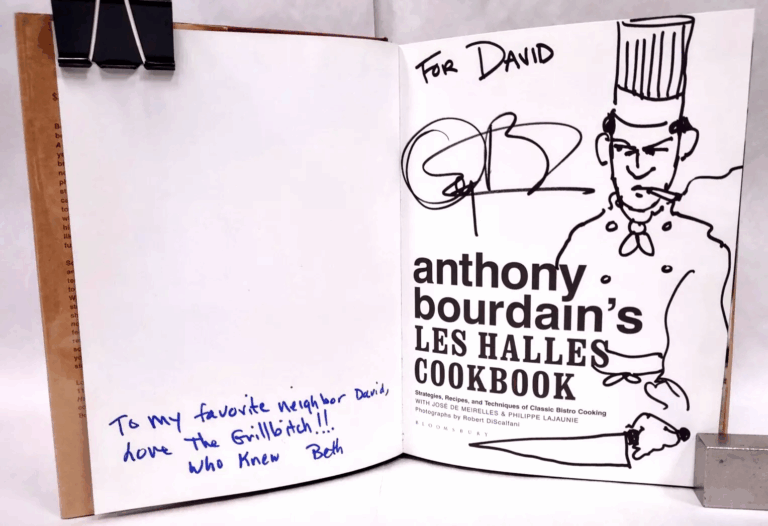 To my favorite neighbor David,
Love The Grillbitch!!!
Who Knew Beth
For David
anthony
bourdain's
LES HALLES
COOKBOOK
Strategies, Recipes, and Techniques of Classic Bistro Cooking
WITH JOSÉ DE MEIRELLES & PHILIPPE LAJAUNIE
Photographs by Robert DiScalfani
BLOOMSBURY